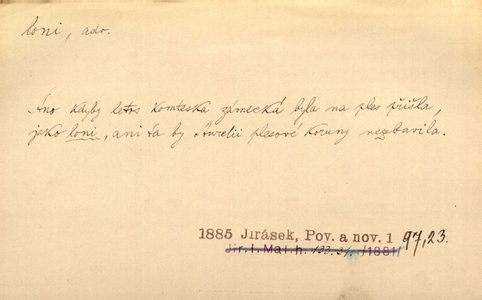 loni, adv.
Ano kdyby letos komteska zámecká byla na ples přišla,
jako loni, ani ta by Aurelii plesové koruny nezbavila.
1885 Jirásek, Pov. a nov. 1 97,23.
Jir. I. Mal. h. /1881/